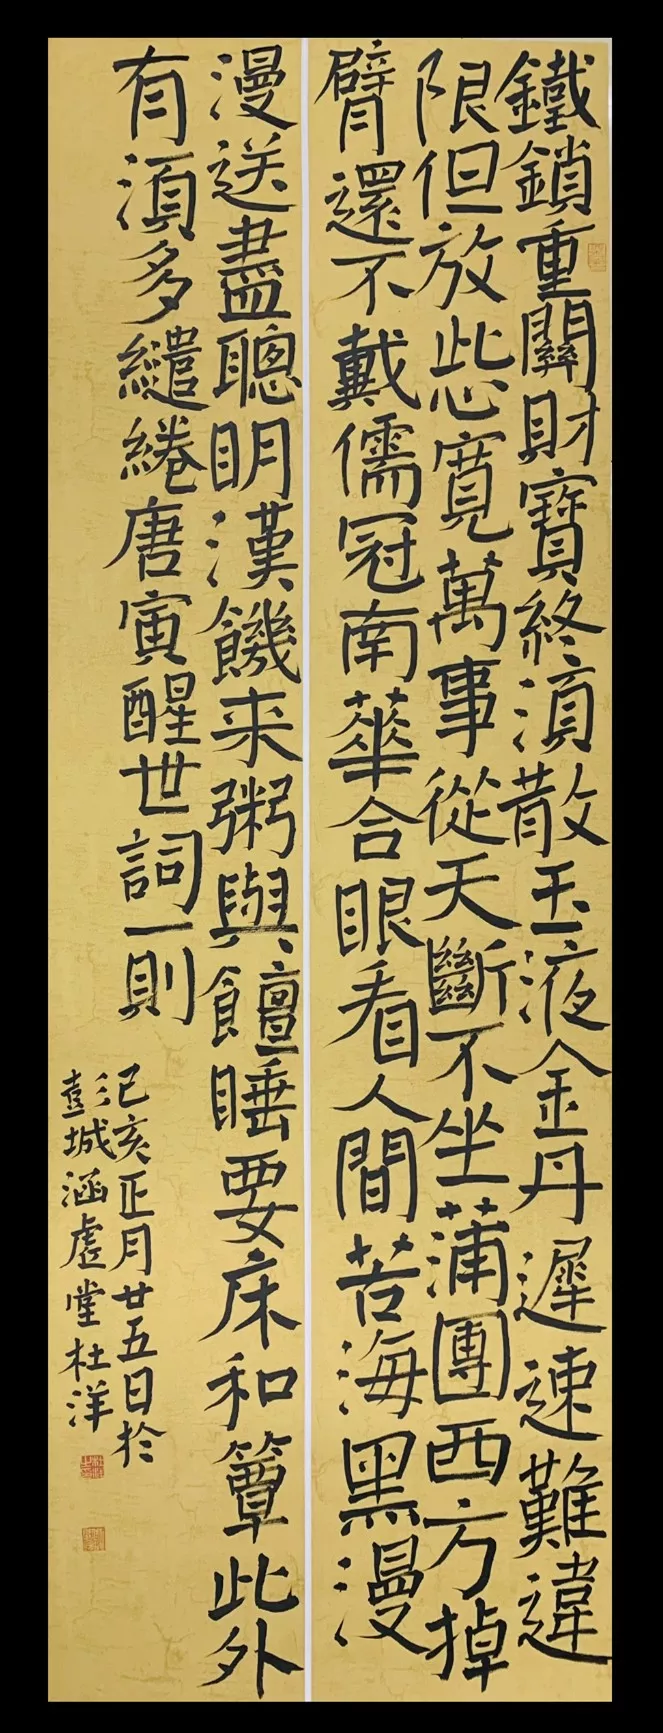 鐵鎖重關財寶終須散玉液金丹遲速難違
限但放些心寬萬事從天斷不坐蒲團西方掉
臂還不戴儒冠南華合眼看人間苦海黑漫
漫送盡聰明漢饑来粥與饘睡要床和簟此外
有須多繾綣唐寅醒世詞一則
己亥正月廿五日於
彭城涵虛堂杜洋